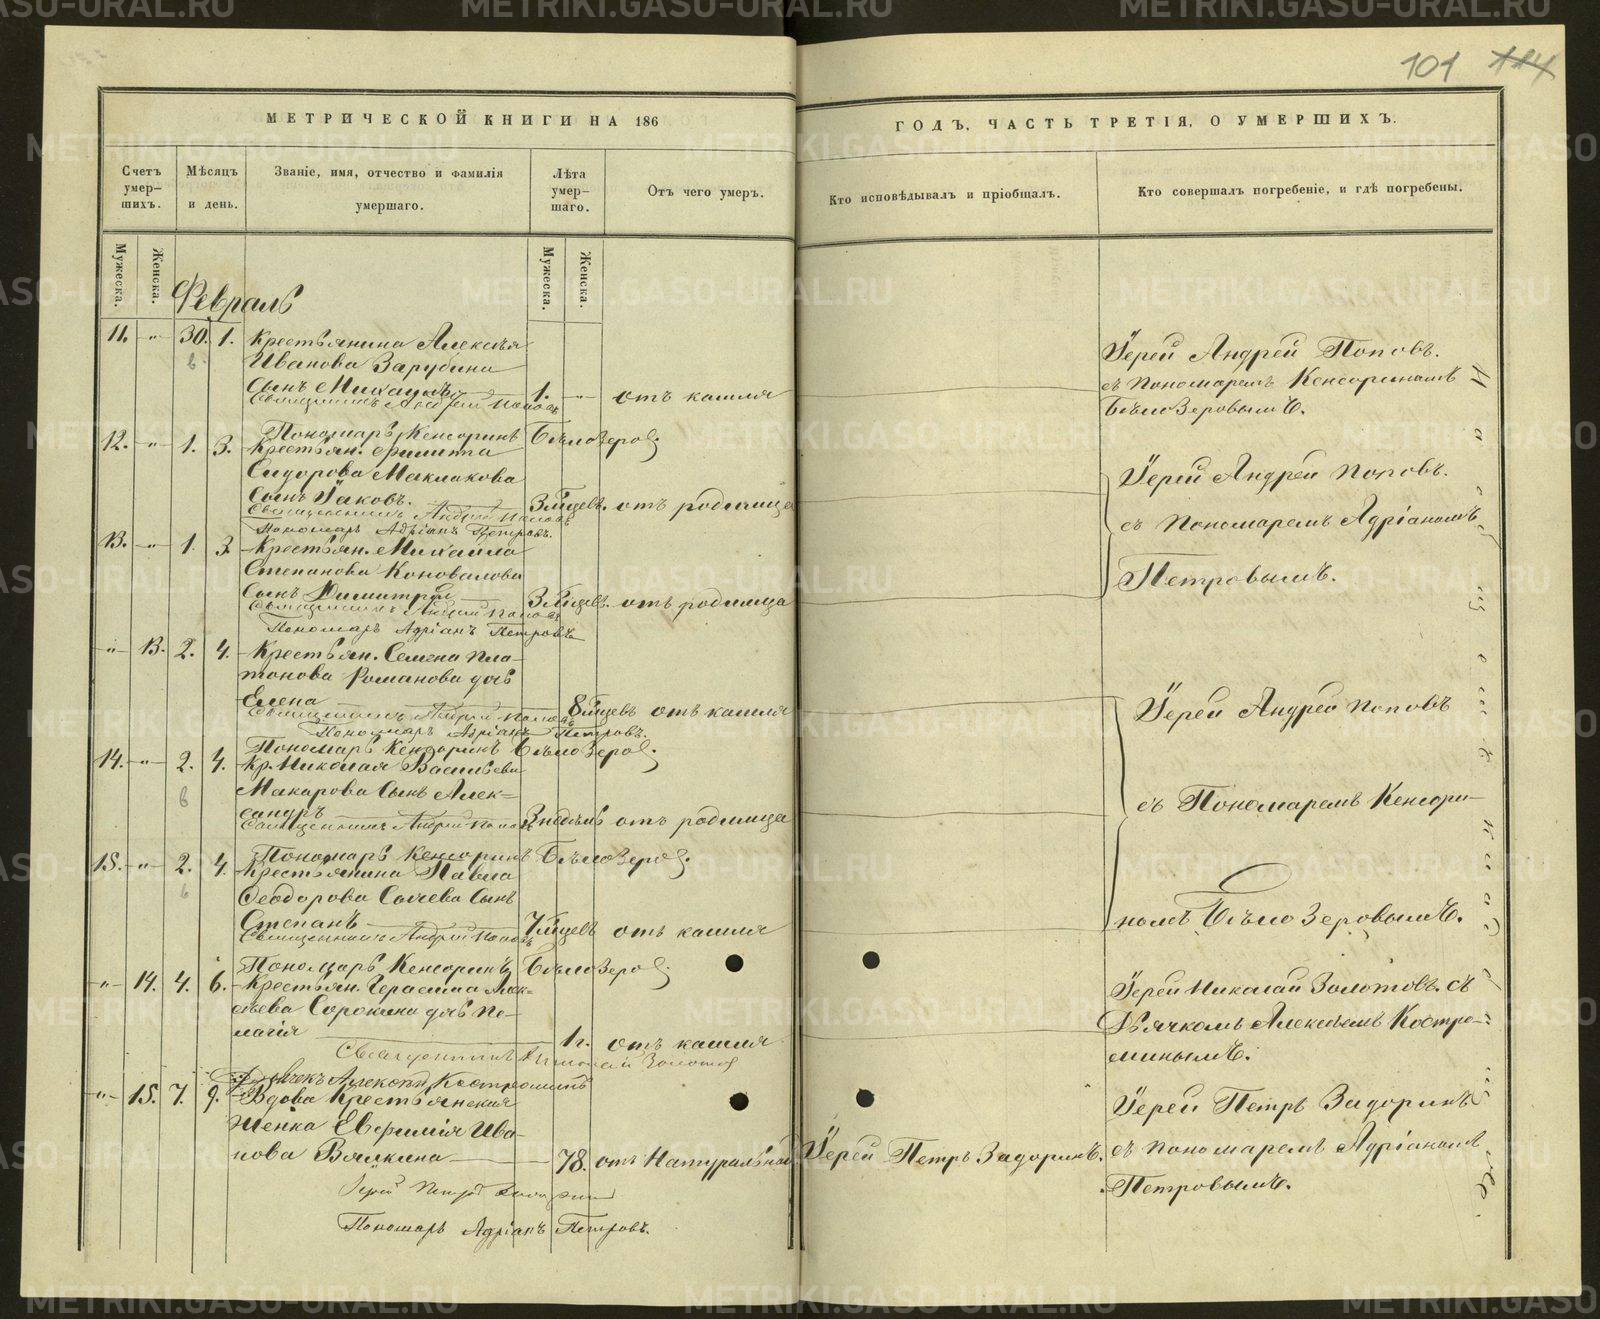 101 114
МЕТРИЧЕСКОЙ КНИГИ НА 186
ГОДЪ, ЧАСТЬ ТРЕТІЯ, О УМЕРШИХЪ.
Счетъ умер-шихъ.
Мѣсяцъ и день.
Званіе, имя, отчество и фамилія умершаго.
Лѣта умер-шаго.
Отъ чего умеръ.
Кто исповѣдывалъ и пріобщалъ.
Кто совершалъ погребеніе, и гдѣ погребены.
Мужеска.
Женска.
Мужеска.
Женска.
Февраль
11. -„- 30. 1. Крестьянина Алексѣя
Иванова Зарубина
Сынъ Михаилъ 1. -„- отъ кашля
Священникъ Андрей Поповъ
Пономарь Кенсоринъ Бѣлозеровъ
Іерей Андрей Поповъ.
съ Пономаремъ Кенсориномъ
Бѣлозеровымъ.
12. -„- 1. 3. Крестьян. Филиппа
Сидорова Маклакова
Сынъ Іаковъ. 3 мѣцевъ. отъ родимца
Священникъ Андрей Поповъ
Пономарь Адріанъ Петровъ.
Іерей Андрей Поповъ.
съ Пономаремъ Адріаномъ
Петровымъ.
13. -„- 1. 3. Крестьян. Михаила
Степанова Коновалова
Сынъ Димитрій 3 мѣцевъ. отъ родимца
Священникъ Андрей Поповъ
Пономарь Адріанъ Петровъ
-„- 13. 2. 4. Крестьян. Семена Пла-
тонова Романова дочь
Елена 8 мѣцевъ отъ кашля
Священникъ Андрей Поповъ
Пономарь Адріанъ Петровъ.
Пономарь Кенсоринъ Бѣлозеровъ.
Іерей Андрей Поповъ
съ Пономаремъ Кенсори-
номъ Бѣлозеровымъ.
14. -„- 2. 4. Кр. Николая Васильева
Макарова Сынъ Алек-
сандръ 3 недѣль отъ родимца
Священникъ Андрей Поповъ
Пономарь Кенсоринъ Бѣлозеровъ.
15. -„- 2. 4. Крестьянина Павла
Ѳеодорова Сычева Сынъ
Степанъ 7 мѣцевъ отъ кашля
Священникъ Андрей Поповъ
Пономарь Кенсоринъ Бѣлозеровъ.
-„- 14. 4. 6. Крестьян. Герасима Алек-
сѣева Сорокина дочь Пе-
лагія 1 г. отъ кашля
Священникъ Николай Золотовъ
Дьячекъ Алексѣй Костроминъ
Іерей Николай Золотовъ. съ
Дьячкомъ Алексѣемъ Костро-
минымъ.
-„- 15. 7. 9. Вдова Крестьянская
Женка Евфимія Ива-
нова Вялкина 78. отъ Натуральной Іерей Петръ Задоринъ.
Іерей Петръ Задоринъ
Пономарь Адріанъ Петровъ.
Іерей Петръ Задоринъ
съ пономаремъ Адріаномъ
Петровымъ.
METRIKI.GASO-URAL.RU